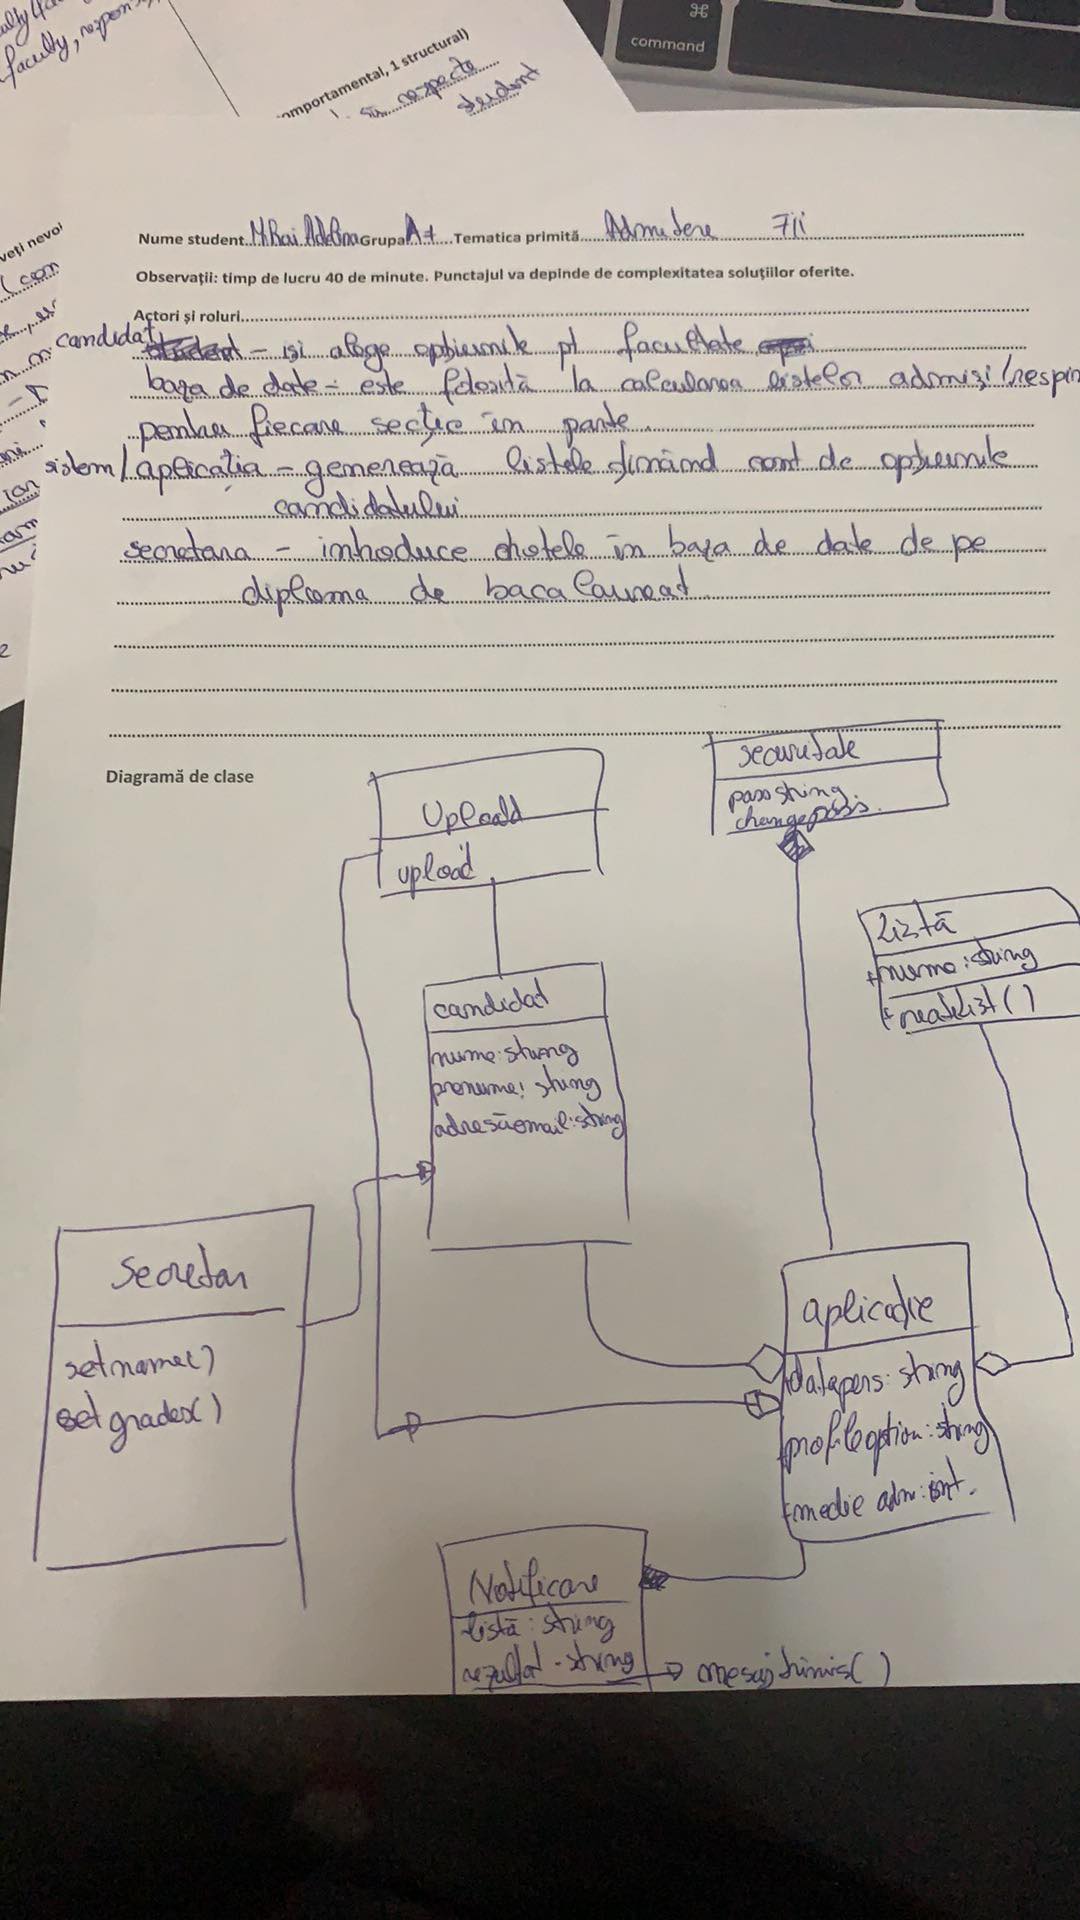 ⌘
command
faculty, respon
omportamental, 1 structural)
să respecte
student
veți nevoi
Nume student Mihai Adelina Grupa A+ Tematica primită Admitere FII
Observații: timp de lucru 40 de minute. Punctajul va depinde de complexitatea soluțiilor oferite.
Actori și roluri
candidat - își alege opțiunile pt facultate
baza de date - este folosită la calcularea listelor admiși/respin
pentru fiecare secție în parte
sistem/aplicația - generează listele ținând cont de opțiunile
candidatului
secretara - introduce datele în baza de date de pe
diploma de bacalaureat
Diagramă de clase
securitate
pass string
changepass
Upload
upload
Listă
+nume: string
+ creatList()
candidat
nume: string
prenume: string
adresăemail: string
Secretar
setname()
set grades()
aplicație
+datepers: string
+profileoption: string
+medie adm: int.
Notificare
listă: string
rezultat - string
mesajtrimis()